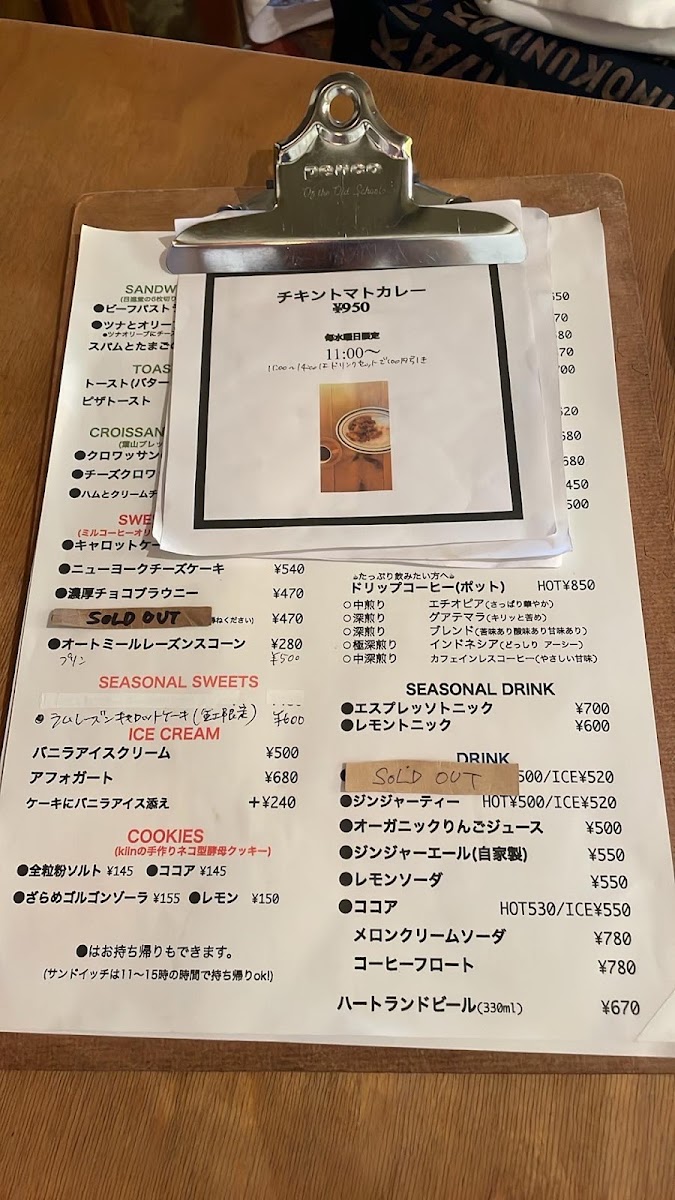 INOKUNIYA
penco
チキントマトカレー
¥950
毎水曜日限定
11:00〜
11:00〜14:00はドリンクセットで100円引き
SANDW
(日進堂の6枚切り
●ビーフパストラ
●ツナとオリー
●ツナオリーブにチー
スパムとたまご
TOAS
トースト(バター
ピザトースト
CROISSAN
(葉山ブレッ
●クロワッサン
●チーズクロワ
●ハムとクリームチ
SWE
(ミルコーヒーオリ
●キャロットケー
●ニューヨークチーズケーキ ¥540
●濃厚チョコブラウニー ¥470
SOLD OUT ねください) ¥470
●オートミールレーズンスコーン ¥280
プリン ¥500
SEASONAL SWEETS
●ラムレーズンキャロットケーキ(金土限定) ¥600
ICE CREAM
バニラアイスクリーム ¥500
アフォガート ¥680
ケーキにバニラアイス添え +¥240
COOKIES
(kiinの手作りネコ型酵母クッキー)
●全粒粉ソルト ¥145 ●ココア ¥145
●ざらめゴルゴンゾーラ ¥155 ●レモン ¥150
●はお持ち帰りもできます。
(サンドイッチは11〜15時の時間で持ち帰りok!)
550
70
80
70
00
520
580
680
450
500
☕たっぷり飲みたい方へ☕
ドリップコーヒー(ポット) HOT¥850
○中煎り エチオピア(さっぱり華やか)
○深煎り グアテマラ(キリッと苦め)
○深煎り ブレンド(苦味あり酸味あり甘味あり)
○極深煎り インドネシア(どっしり アーシー)
○中深煎り カフェインレスコーヒー(やさしい甘味)
SEASONAL DRINK
●エスプレッソトニック ¥700
●レモントニック ¥600
DRINK
● SOLD OUT 500/ICE¥520
●ジンジャーティー HOT¥500/ICE¥520
●オーガニックりんごジュース ¥500
●ジンジャーエール(自家製) ¥550
●レモンソーダ ¥550
●ココア HOT530/ICE¥550
メロンクリームソーダ ¥780
コーヒーフロート ¥780
ハートランドビール(330ml) ¥670